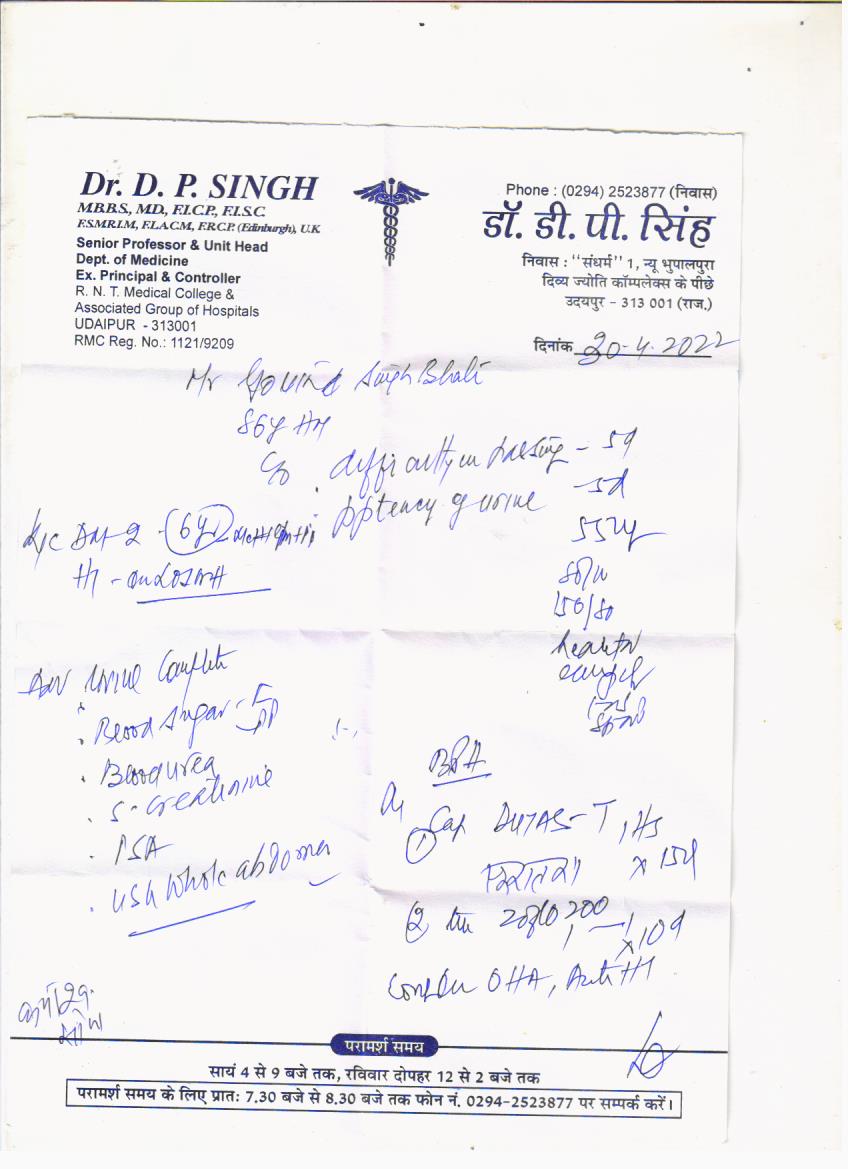 Dr. D. P. SINGH
M.B.B.S., M.D., F.I.C.P., F.I.S.C.
F.S.M.R.I.M., F.I.A.C.M., F.R.C.P. (Edinburgh), U.K.
Senior Professor & Unit Head
Dept. of Medicine
Ex. Principal & Controller
R. N. T. Medical College &
Associated Group of Hospitals
UDAIPUR - 313001
RMC Reg. No.: 1121/9209
Phone : (0294) 2523877 (निवास)
डॉ. डी. पी. सिंह
निवास : "संधर्म" 1, न्यू भुपालपुरा
दिव्य ज्योति कॉम्पलेक्स के पीछे
उदयपुर - 313 001 (राज.)
दिनांक 20-4-2022
Mr Govind Singh Bhati
86y
c/o difficulty in passing - 5d
urine - 5d
K/c DM-2 - 6y
HT -
80/m
150/80
Adv Urine Complete
Blood Sugar - F PP
Blood urea
S-Creatinine
PSA
USG whole abdomen
BPH
Rx
① Cap DUTAS-T, HS
x 15d
② 200
1 — 1
x 10d
OHA, Anti HT
परामर्श समय
सायं 4 से 9 बजे तक, रविवार दोपहर 12 से 2 बजे तक
परामर्श समय के लिए प्रातः 7.30 बजे से 8.30 बजे तक फोन नं. 0294-2523877 पर सम्पर्क करें।